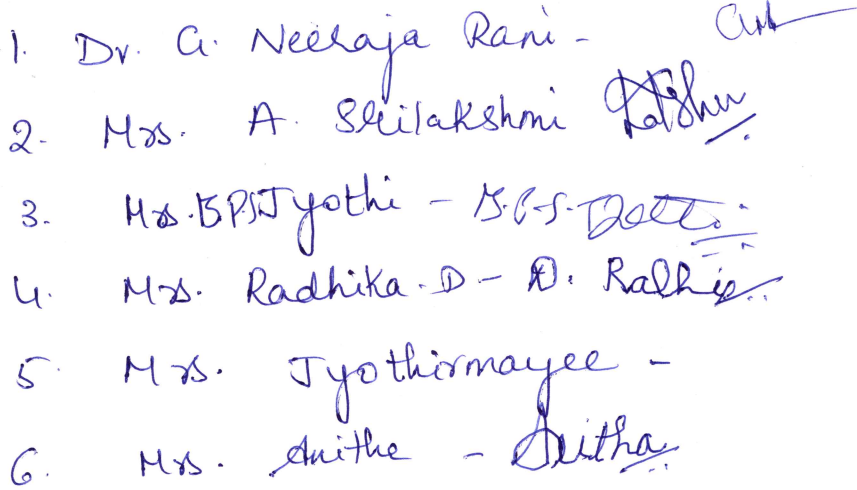 1. Dr. G. Neeraja Rani -
2. Mrs. A. Srilakshmi
3. Mrs. B.P.S Jyothi - B.P.S.
4. Mrs. Radhika. D - D. Radhika
5. Mrs. Jyothirmayee -
6. Mrs. Anitha - Anitha